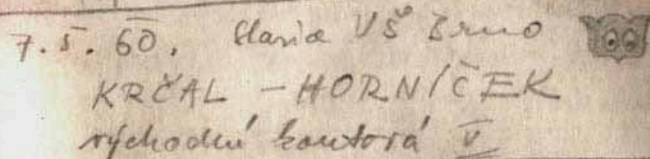 7. 5. 60. Slavia VŠ Brno
KRČAL – HORNÍČEK
východní koutová V